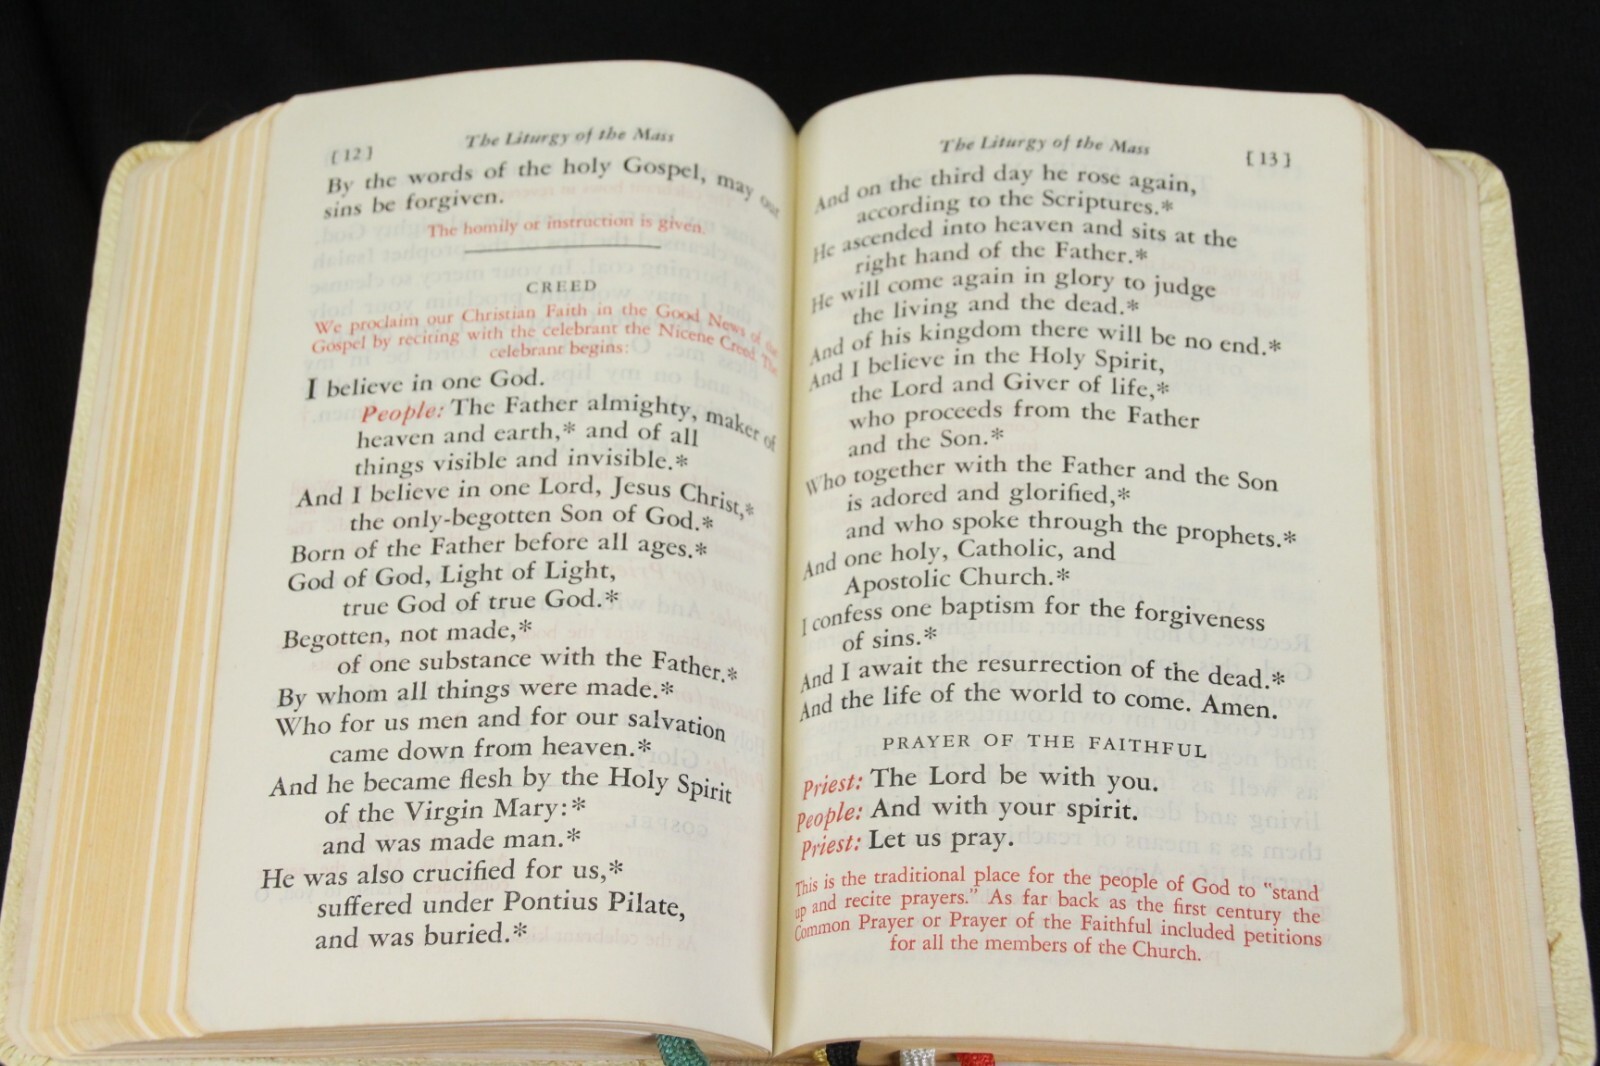 [12]
The Liturgy of the Mass
By the words of the holy Gospel, may our
sins be forgiven.
The homily or instruction is given.
CREED
We proclaim our Christian Faith in the Good News of the
Gospel by reciting with the celebrant the Nicene Creed The
celebrant begins:
I believe in one God.
People: The Father almighty, maker of
heaven and earth,* and of all
things visible and invisible.*
And I believe in one Lord, Jesus Christ,*
the only-begotten Son of God.*
Born of the Father before all ages.*
God of God, Light of Light,
true God of true God.*
Begotten, not made,*
of one substance with the Father.*
By whom all things were made.*
Who for us men and for our salvation
came down from heaven.*
And he became flesh by the Holy Spirit
of the Virgin Mary:*
and was made man.*
He was also crucified for us,*
suffered under Pontius Pilate,
and was buried.*
The Liturgy of the Mass
[13]
And on the third day he rose again,
according to the Scriptures.*
He ascended into heaven and sits at the
right hand of the Father.*
He will come again in glory to judge
the living and the dead.*
And of his kingdom there will be no end.*
And I believe in the Holy Spirit,
the Lord and Giver of life,*
who proceeds from the Father
and the Son.*
Who together with the Father and the Son
is adored and glorified,*
and who spoke through the prophets.*
And one holy, Catholic, and
Apostolic Church.*
I confess one baptism for the forgiveness
of sins.*
And I await the resurrection of the dead.*
And the life of the world to come. Amen.
PRAYER OF THE FAITHFUL
Priest: The Lord be with you.
People: And with your spirit.
Priest: Let us pray.
This is the traditional place for the people of God to "stand
up and recite prayers." As far back as the first century the
Common Prayer or Prayer of the Faithful included petitions
for all the members of the Church.